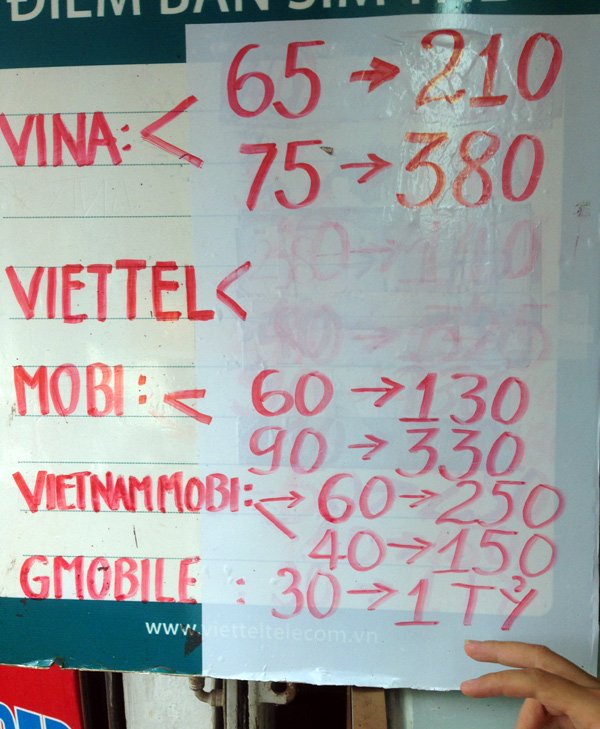 ĐIỂM BÁN SIM THẺ
65 → 210
VINA: <
75 → 380
VIETTEL <
MOBI: < 60 → 130
90 → 330
VIETNAMMOBI: < → 60 → 250
40 → 150
GMOBILE : 30 → 1 TỶ
www.vietteltelecom.vn